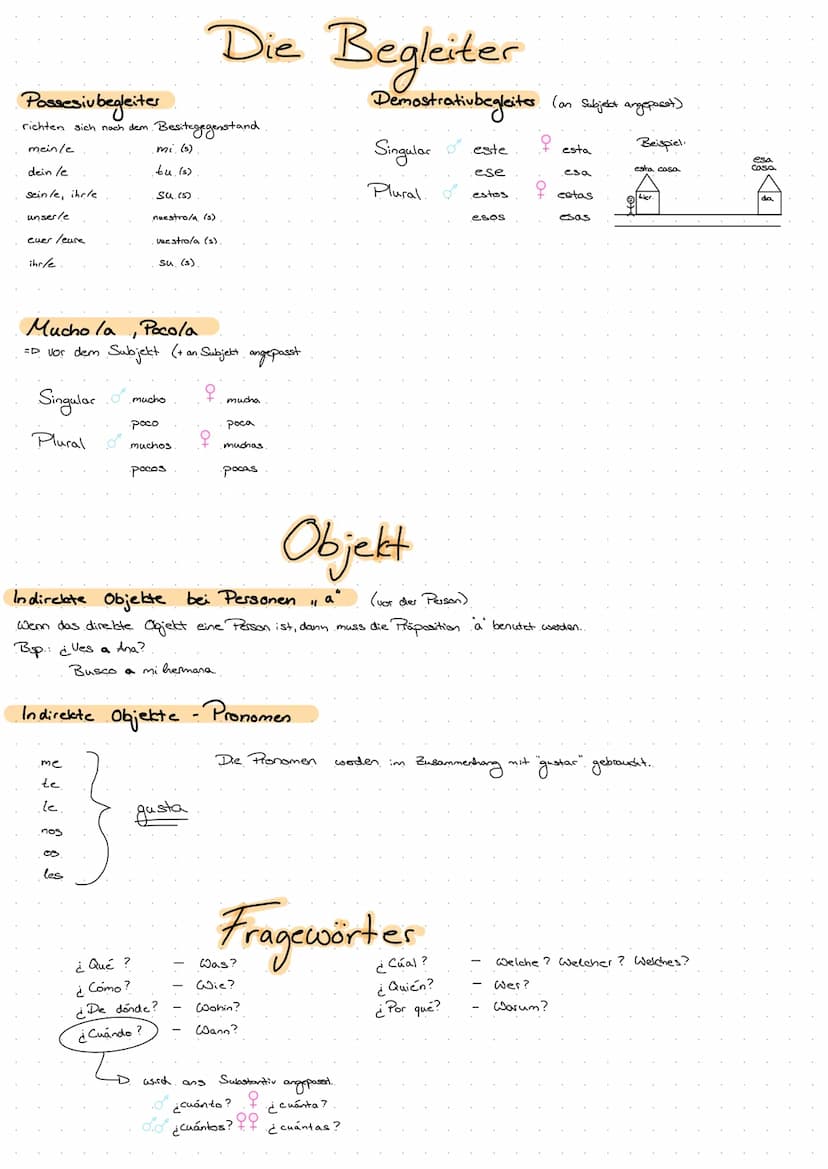 Die Begleiter
Possesivbegleiter
richten sich nach dem Besitzgegenstand
mein/e mi (s)
dein/e tu (s)
sein/e, ihr/e su (s)
unser/e nuestro/a (s)
euer/eure vuestro/a (s)
ihr/e su (s)
Demostrativbegleiter (an Subjekt angepasst)
Singular ♂ este ♀ esta
ese esa
Plural ♂ estos ♀ estas
esos esas
Beispiel:
esta casa
esa casa
hier
da
Mucho/a, Poco/a
=> vor dem Subjekt (+ an Subjekt angepasst
Singular ♂ mucho ♀ mucha
poco poca
Plural ♂ muchos ♀ muchas
pocos pocas
Objekt
Indirekte Objekte bei Personen „a“ (vor der Person)
Wenn das direkte Objekt eine Person ist, dann muss die Präposition "a" benutzt werden.
Bsp.: ¿Ves a Ana?
Busco a mi hermana
Indirekte Objekte - Pronomen
me
te
le
nos
os
les
gusta
Die Pronomen werden im Zusammenhang mit "gustar" gebraucht.
Fragewörter
¿Qué? - Was?
¿Cómo? - Wie?
¿De dónde? - Wohin?
¿Cuándo? - Wann?
¿Cúal? - Welche? Welcher? Welches?
¿Quién? - Wer?
¿Por qué? - Warum?
wird ans Substantiv angepasst
♂ ¿cuánto? ♀ ¿cuánta?
♂♂ ¿cuántos? ♀♀ ¿cuántas?